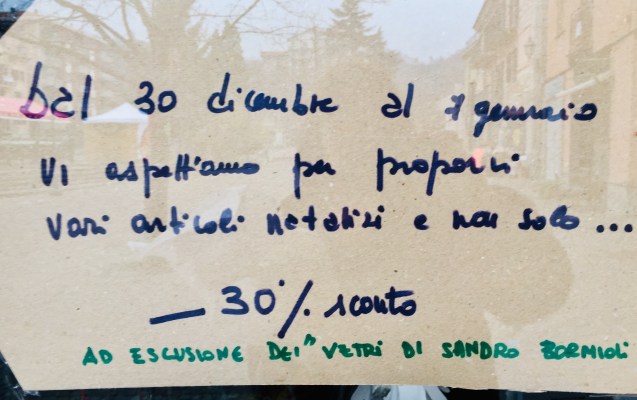 Dal 30 dicembre al 7 gennaio
Vi aspettiamo per proporvi
vari articoli natalizi e non solo...
— 30% sconto
AD ESCLUSIONE DEI " VETRI DI SANDRO BORMIOLI